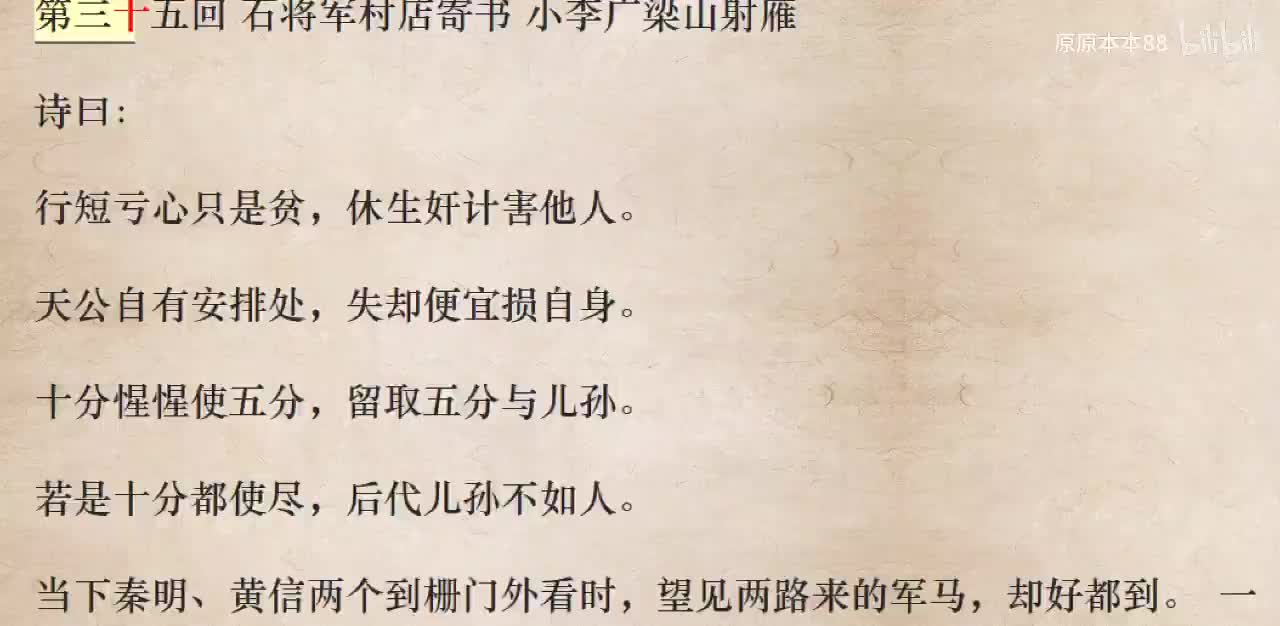 第三十五回 石将军村店寄书 小李广梁山射雁
原原本本88 bilibili
诗曰：
行短亏心只是贫，休生奸计害他人。
天公自有安排处，失却便宜损自身。
十分惺惺使五分，留取五分与儿孙。
若是十分都使尽，后代儿孙不如人。
当下秦明、黄信两个到栅门外看时，望见两路来的军马，却好都到。 一